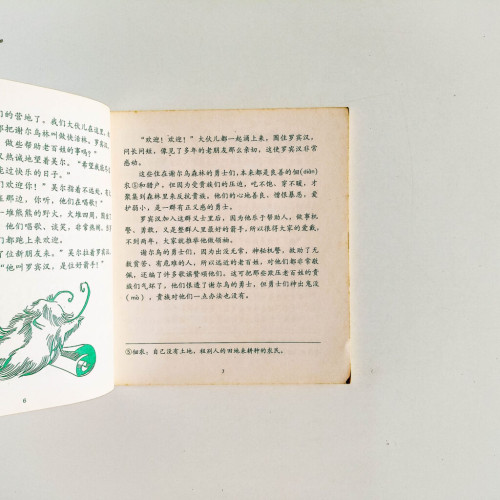 们的营地了。我们大伙儿在这里,
都把谢尔乌林叫做快活林。罗宾汉,
做些帮助老百姓的事吗?"
又热诚地望着吴尔。"希望
能过快乐的日子。"
们欢迎你!"吴尔指着不远处,
在那边,你听,他们在唱歌!"
一堆熊熊的火,火堆四周,
们唱歌,谈笑,非常热闹。
们都跑上来欢迎。
了位新朋友来。"吴尔拉着罗宾汉
"他叫罗宾汉,是位好箭手!"
6
"欢迎!欢迎!"大伙儿都一起涌上来,围住罗宾汉,
问长问短,像见了多年的老朋友那么亲切,这使罗宾汉非常
感动。
这些住在谢尔乌森林的勇士们,本来都是良善的佃(diàn)
农①和猎户。但因为受贵族们的压迫,吃不饱、穿不暖,才
聚集到森林里来反抗贵族。他们的心地善良、憎恨暴恶,爱
护弱小,是一群有正义感的勇士。
罗宾汉加入这群义士里后,因为他乐于帮助人,做事机
警、勇敢,又是整群人里最好的箭手,所以很得大家的爱戴。
不到两年,大家就推举他做领袖。
谢尔乌的勇士们,因为出没无常,神秘机警,救助了无
数贫苦、有危难的人,所以远近的老百姓,对他们都非常敬
佩,还编了许多歌诵赞颂他们。这可把那些欺压老百姓的贵
族们气坏了。他们恨透了谢尔乌的勇士,但勇士们神出鬼没
(mò),贵族对他们一点办法也没有。
①佃农:自己没有土地,租别人的田地来耕种的农民。